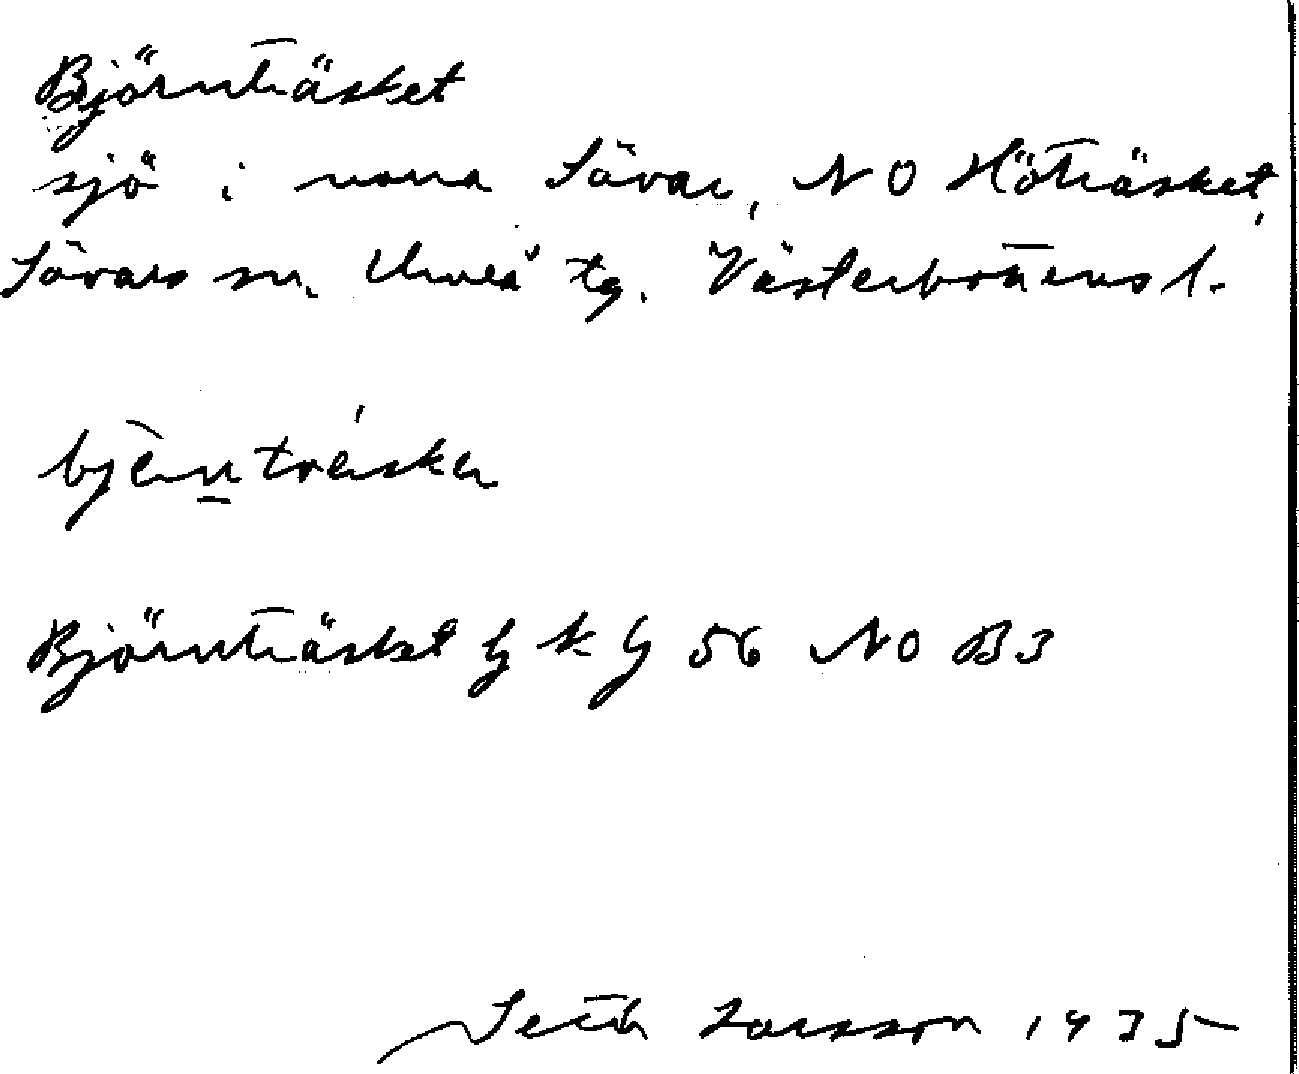 Björnträsket
sjö i norra Sävar, NO Hötträsket,
Sävars sn. Umeå tg. Västerbottens l.
Björnträsket Gsk 56 NO B3
Seth Larsson 1935